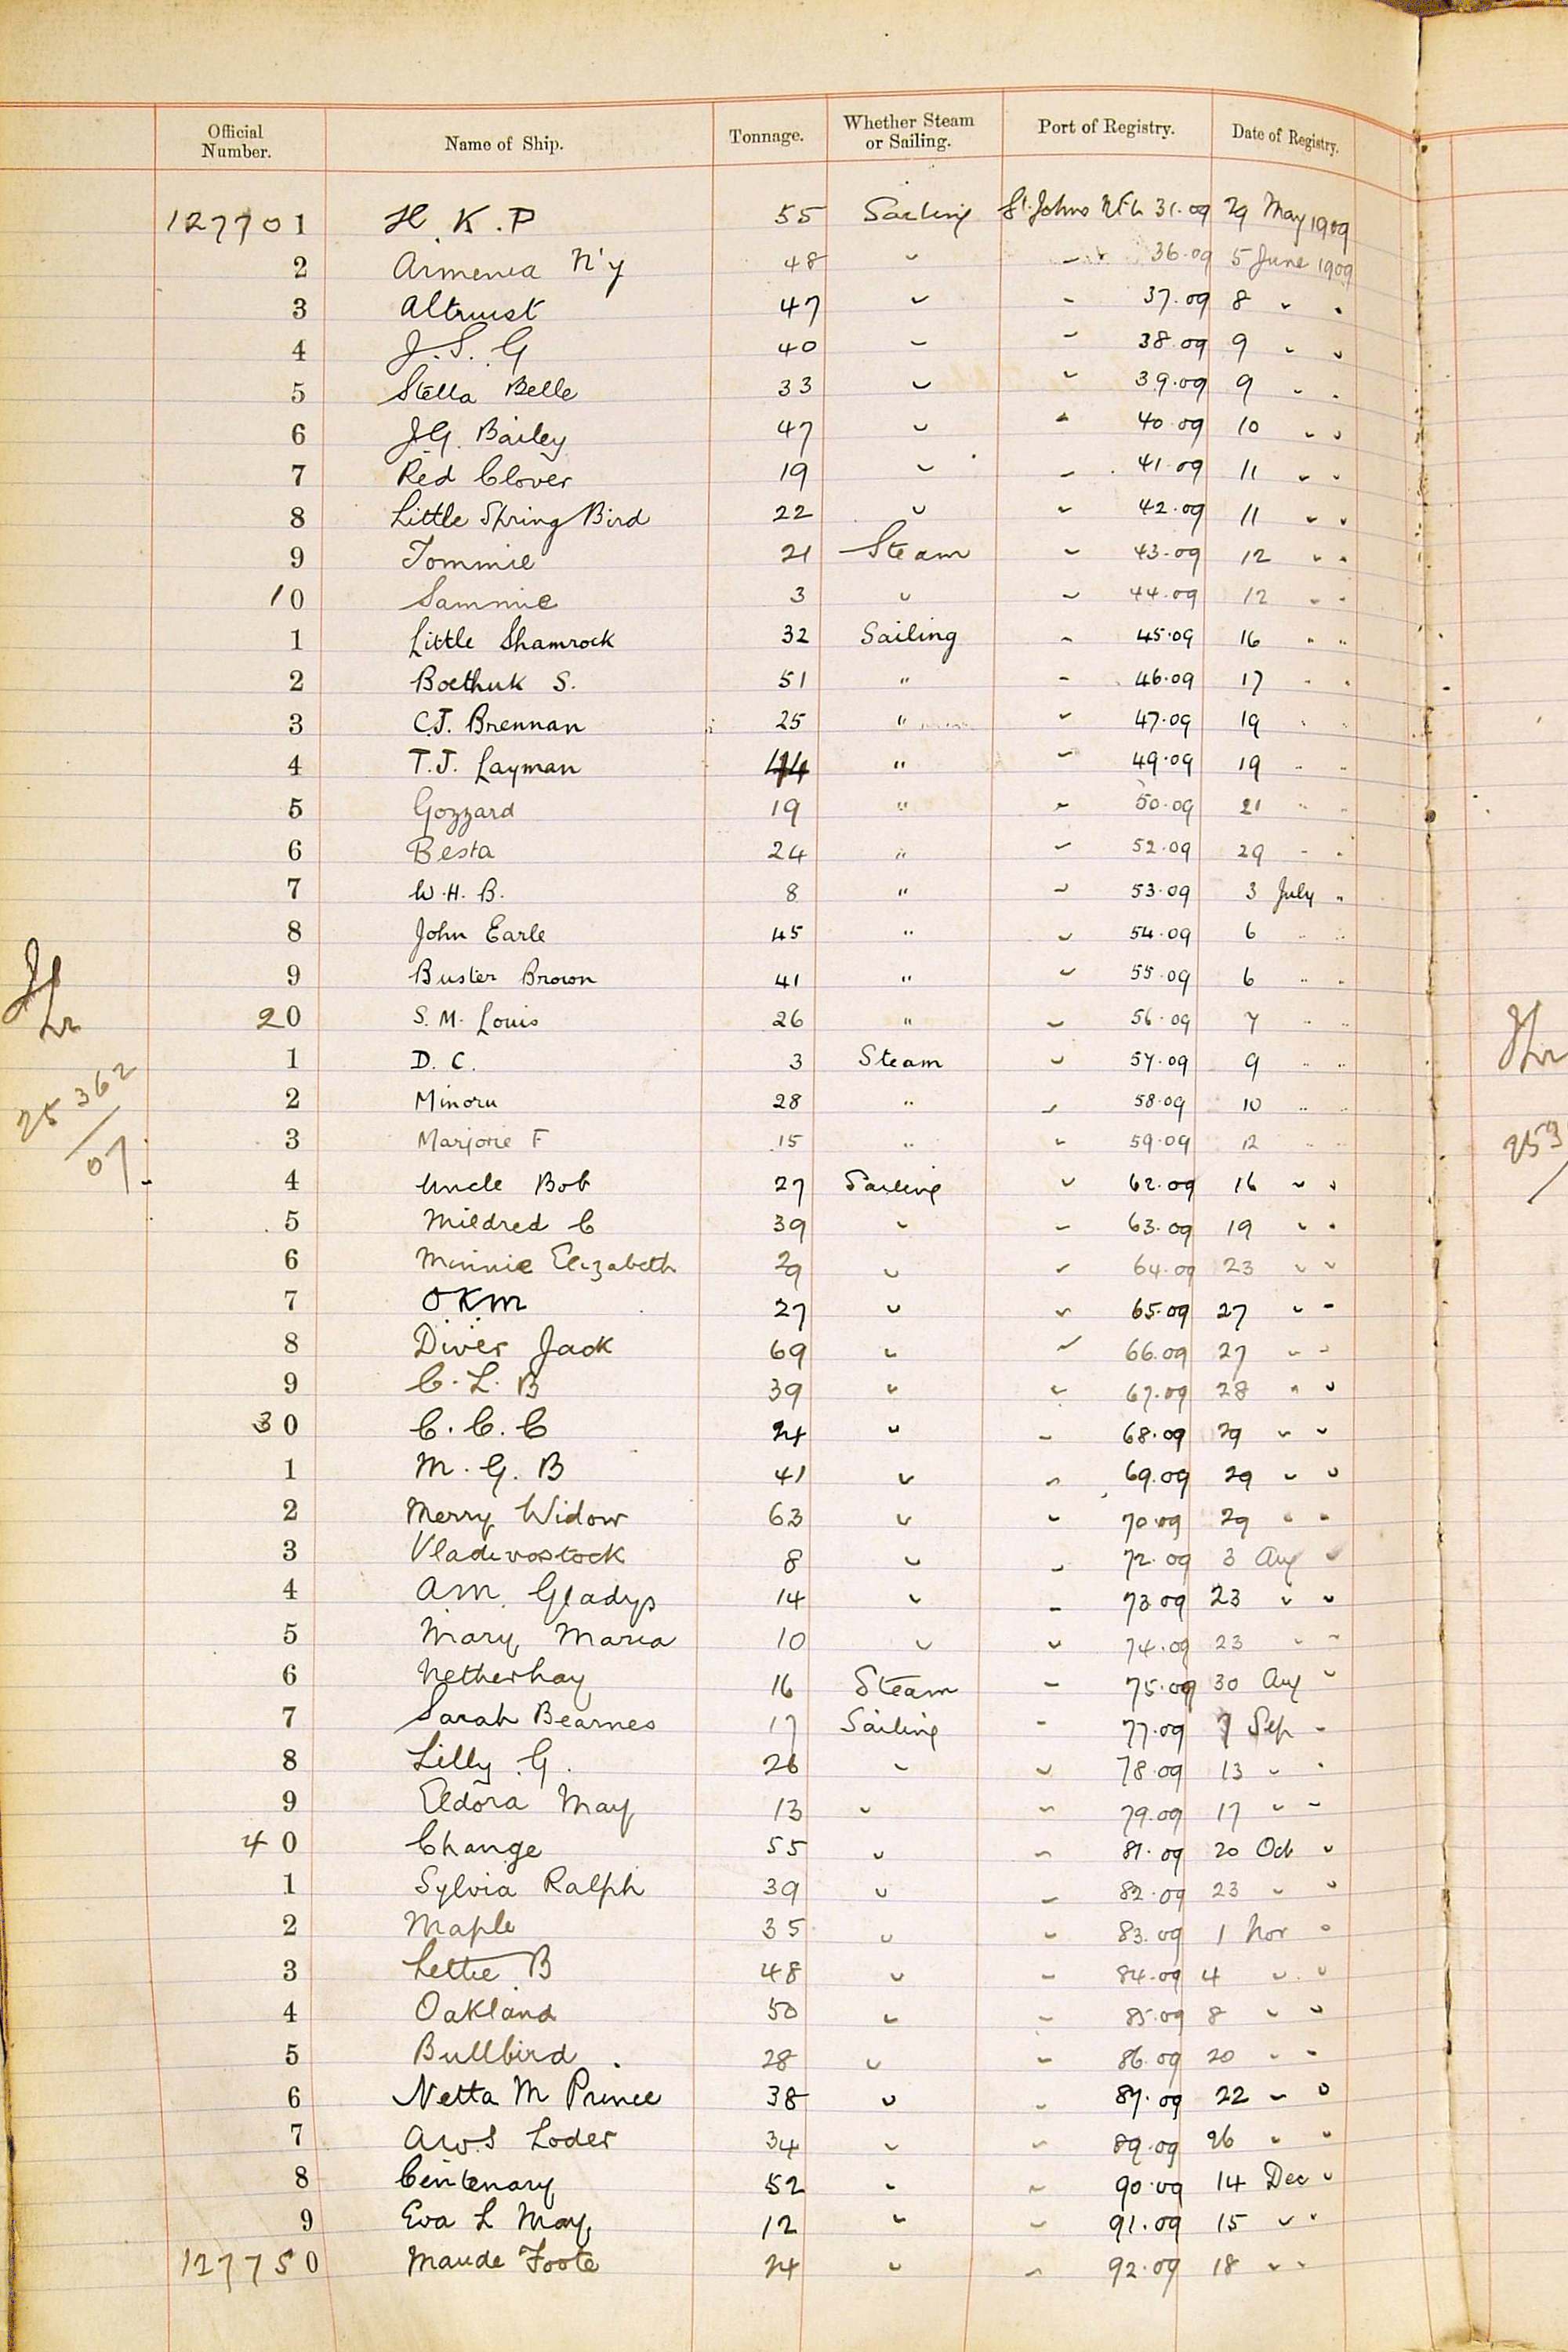 Official Number. Name of Ship. Tonnage. Whether Steam or Sailing. Port of Registry. Date of Registry.
127701 H.K.P 55 Sailing St. Johns Nfld 31.09 29 May 1909
2 Armenia N'y 48 " " 36.09 5 June 1909
3 Altruist 47 " " 37.09 8 " "
4 J.S.G 40 " " 38.09 9 " "
5 Stella Belle 33 " " 39.09 9 " "
6 J.G. Bailey 47 " " 40.09 10 " "
7 Red Clover 19 " " 41.09 11 " "
8 Little Spring Bird 22 " " 42.09 11 " "
9 Tommie 21 Steam " 43.09 12 " "
10 Sammie 3 " " 44.09 12 " "
1 Little Shamrock 32 Sailing " 45.09 16 " "
2 Boethuk S. 51 " " 46.09 17 " "
3 C.J. Brennan 25 " " 47.09 19 " "
4 T.J. Layman 44 " " 49.09 19 " "
5 Gozzard 19 " " 50.09 21 " "
6 Besta 24 " " 52.09 29 " "
7 W.H.B. 8 " " 53.09 3 July "
8 John Earle 45 " " 54.09 6 " "
9 Buster Brown 41 " " 55.09 6 " "
20 S.M. Louis 26 " " 56.09 7 " "
1 D.C. 3 Steam " 57.09 9 " "
2 Minoru 28 " " 58.09 10 " "
3 Marjorie F 15 " " 59.09 12 " "
25362/07
4 Uncle Bob 27 Sailing " 62.09 16 " "
5 Mildred C 39 " " 63.09 19 " "
6 Minnie Elizabeth 29 " " 64.09 23 " "
7 OKM 27 " " 65.09 27 " "
8 Diver Jack 69 " " 66.09 27 " "
9 C.L.B 39 " " 67.09 28 " "
30 C.C.C 24 " " 68.09 29 " "
1 M.G.B 41 " " 69.09 29 " "
2 Merry Widow 63 " " 70.09 29 " "
3 Vladivostock 8 " " 72.09 3 Aug "
4 AM. Gladys 14 " " 73.09 23 " "
5 Mary Maria 10 " " 74.09 23 " "
6 Netherhay 16 Steam " 75.09 30 Aug "
7 Sarah Bearnes 17 Sailing " 77.09 7 Sep "
8 Lilly G. 26 " " 78.09 13 " "
9 Eldora May 13 " " 79.09 17 " "
40 Change 55 " " 81.09 20 Oct "
1 Sylvia Ralph 39 " " 82.09 23 " "
2 Maple 35 " " 83.09 1 Nov "
3 Lettie B 48 " " 84.09 4 " "
4 Oakland 50 " " 85.09 8 " "
5 Bullbird 28 " " 86.09 20 " "
6 Netta M Prince 38 " " 87.09 22 " "
7 AW.S Loder 34 " " 89.09 26 " "
8 Centenary 52 " " 90.09 14 Dec "
9 Eva L May 12 " " 91.09 15 " "
127750 Maude Foote 24 " " 92.09 18 " "